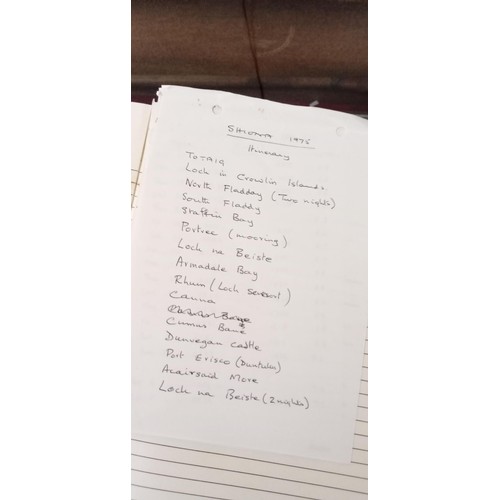 SHIONA 1975
Itinerary
TOTAIG
Loch in Crowlin Islands
North Fladday (Two nights)
South Fladdy
Staffin Bay
Portree (mooring)
Loch na Beiste
Armadale Bay
Rhum (Loch Scresort)
Canna
Cumus Bane
Dunvegan castle
Port Erisco (Duntulm)
Acairsaid More
Loch na Beiste (2 nights)